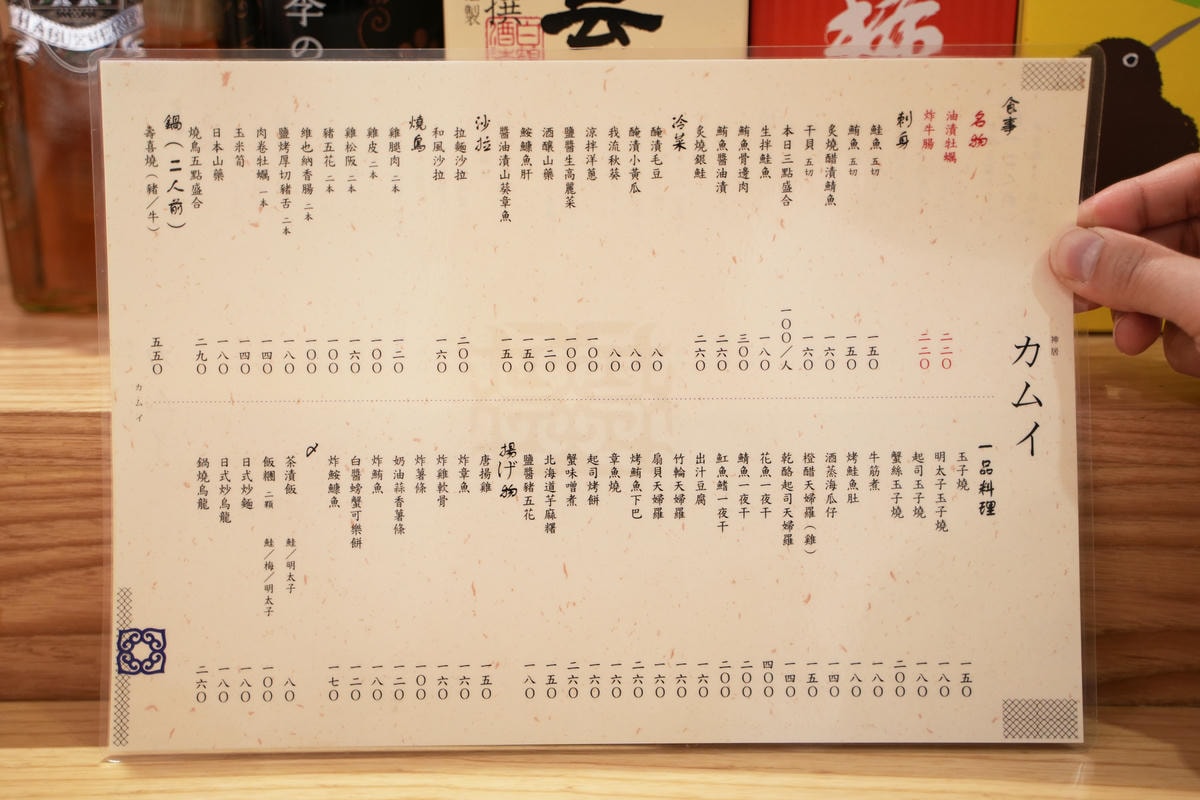 季の
製
撰
白鶴
酒
雲
HABUSHU
神居
カムイ
食事
名物
油漬牡蠣 二二〇
炸牛腸 二二〇
刺身
鮭魚 五切 一五〇
鮪魚 五切 一五〇
炙燒醋漬鯖魚 一六〇
干貝 五切 一六〇
本日三點盛合 一〇〇/人
生拌鮭魚 一八〇
鮪魚骨邊肉 三〇〇
鮪魚醬油漬 二六〇
炙燒銀鮭 二六〇
冷菜
醃漬毛豆 八〇
醃漬小黃瓜 八〇
我流秋葵 八〇
涼拌洋蔥 一〇〇
鹽醬生高麗菜 一〇〇
酒釀山藥 一二〇
鮟鱇魚肝 一五〇
醬油漬山葵章魚 一五〇
沙拉
拉麵沙拉 二〇〇
和風沙拉 一六〇
燒鳥
雞腿肉 二本 一二〇
雞皮 二本 一〇〇
雞松阪 二本 一六〇
豬五花 二本 一〇〇
維也納香腸 二本 一〇〇
鹽烤厚切豬舌 二本 一八〇
肉卷牡蠣 一本 一四〇
玉米筍 一四〇
日本山藥 一八〇
燒鳥五點盛合 二九〇
鍋(二人前)
壽喜燒(豬/牛) 五五〇
カムイ
一品料理
玉子燒 一五〇
明太子玉子燒 一八〇
起司玉子燒 一八〇
蟹絲玉子燒 二〇〇
牛筋煮 一八〇
烤鮭魚肚 一八〇
酒蒸海瓜仔 一四〇
橙醋天婦羅(雞) 一五〇
乾酪起司天婦羅 一四〇
花魚一夜干 四〇〇
鯖魚一夜干 二〇〇
魟魚鰭一夜干 二〇〇
出汁豆腐 一六〇
竹輪天婦羅 一六〇
扇貝天婦羅 一六〇
烤鮪魚下巴 二六〇
章魚燒 一六〇
起司烤餅 一六〇
蟹味噌煮 二六〇
北海道芋麻糬 一五〇
鹽醬豬五花 一八〇
揚げ物
唐揚雞 一五〇
炸章魚 一六〇
炸雞軟骨 一六〇
炸薯條 一〇〇
奶油蒜香薯條 一二〇
炸鮪魚 一八〇
白醬螃蟹可樂餅 一二〇
炸鮟鱇魚 一七〇
〆
茶漬飯 鮭/明太子 八〇
飯糰 二顆 鮭/梅/明太子 一〇〇
日式炒麵 一八〇
日式炒烏龍 一八〇
鍋燒烏龍 二六〇